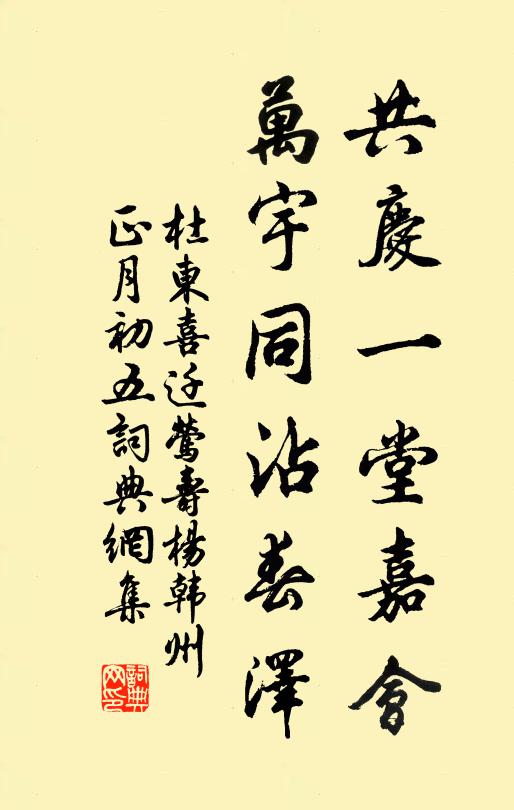 共慶一堂嘉會
萬宇同沾春澤
杜東喜迁鶯壽楊韩州
正月初五詞典網集
詞典
网印